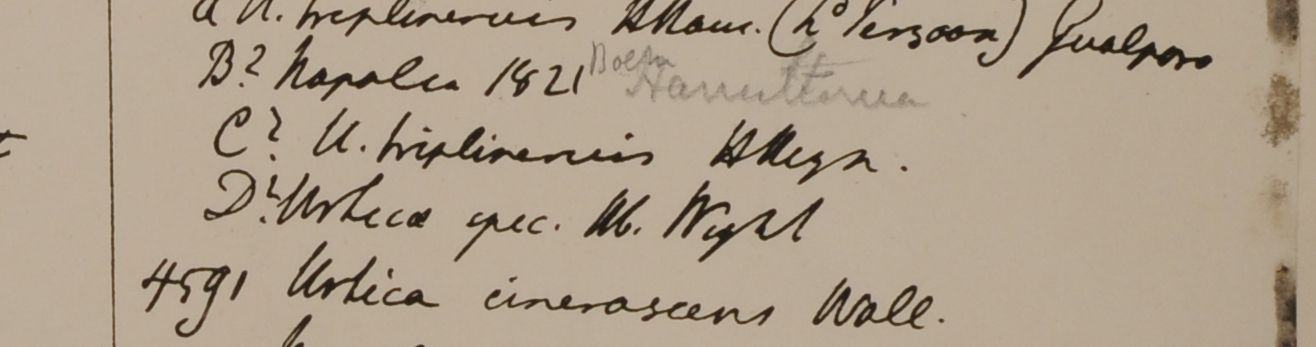 a U. triplinervis HHam. (hᵒ Persoon) Gualpara
B? Napalia 1821 Boehm
C? U. triplinervis HHeyn.
D? Urtica spec. Hb. Wight
4591 Urtica cinerascens Wall.